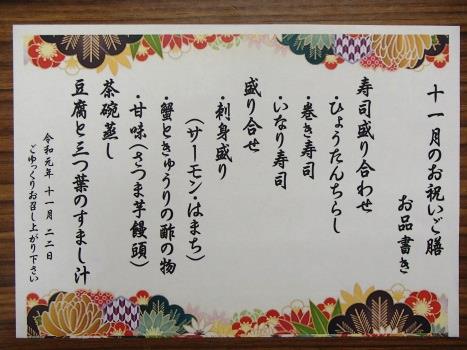 十一月のお祝いご膳
お品書き
寿司盛り合わせ
・ひょうたんちらし
・巻き寿司
・いなり寿司
盛り合せ
・刺身盛り
（サーモン・はまち）
・蟹ときゅうりの酢の物
・甘味（さつま芋饅頭）
茶碗蒸し
豆腐と三つ葉のすまし汁
令和元年 十一月 二二日
ごゆっくりお召し上がり下さい